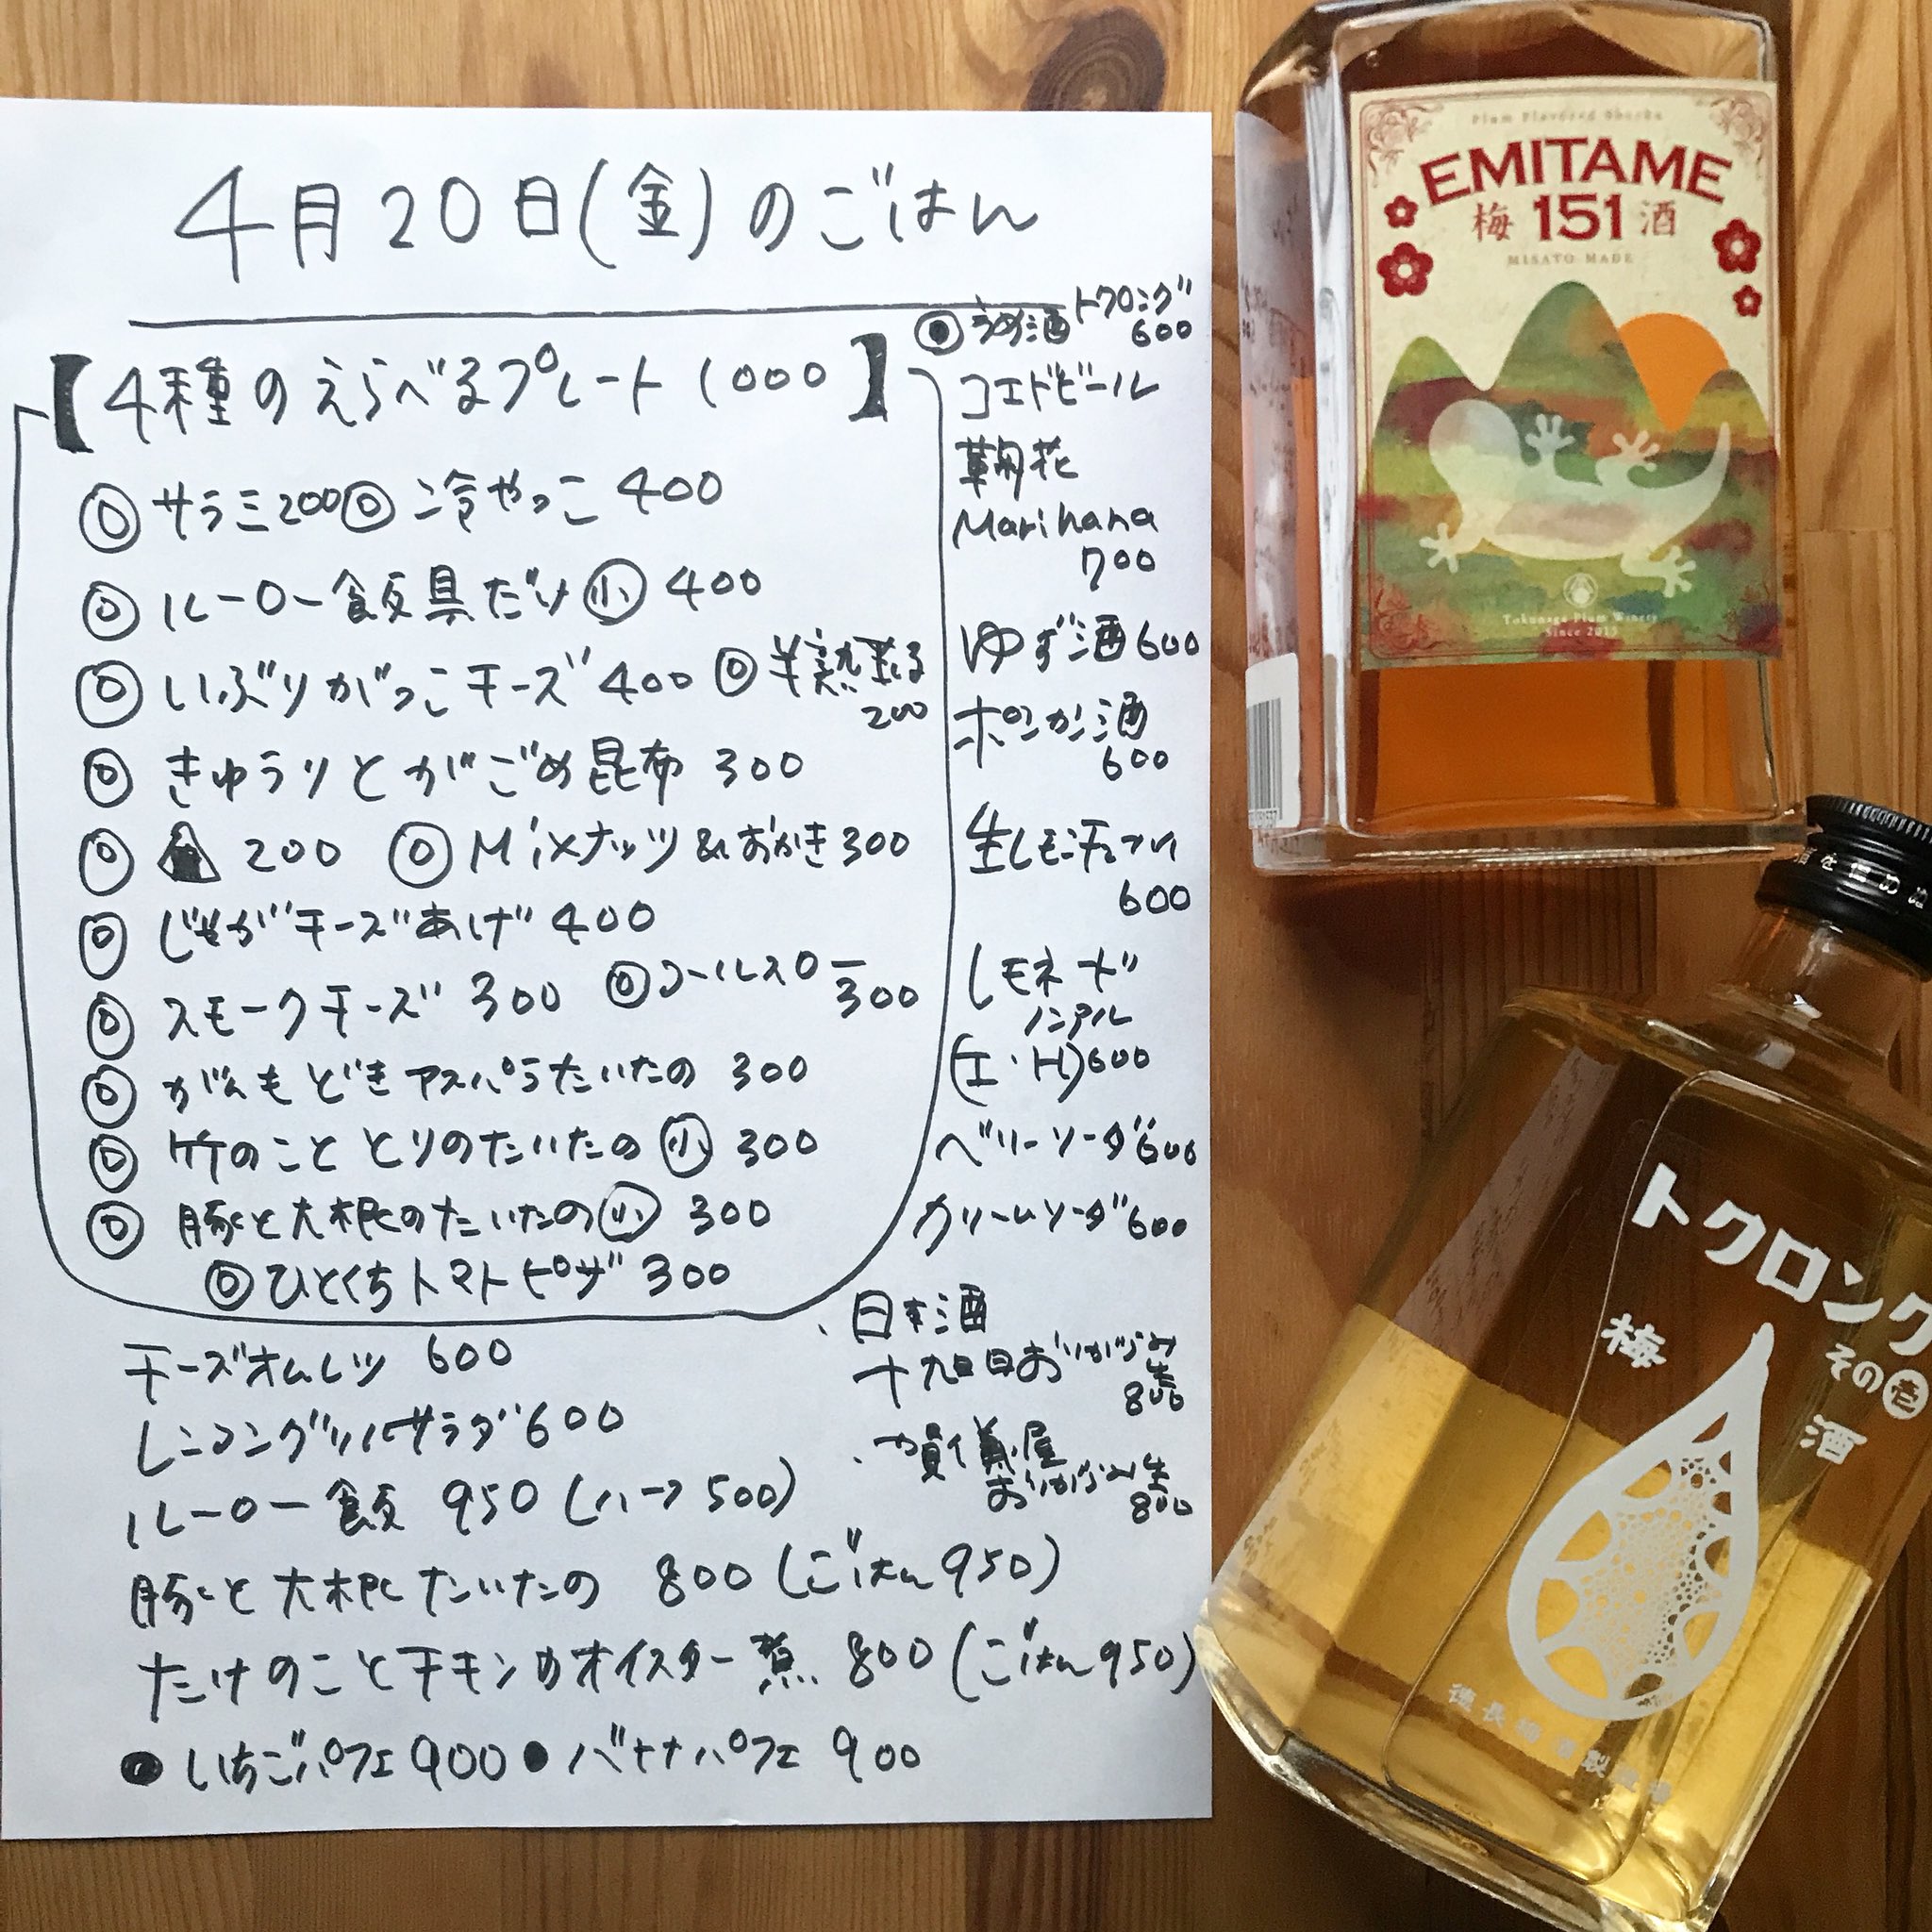 4月20日(金)のごはん
【4種のえらべるプレート 1000】
◎サラミ200 ◎冷やっこ 400
◎ルーロー飯具だけ(小) 400
◎いぶりがっこチーズ 400 ◎半熟
200
◎きゅうりとがごめ昆布 300
◎ 200 ◎Mixナッツ&おかき300
◎じゃがチーズあげ 400
◎スモークチーズ 300 ◎コールスロー
300
◎がんもどきアスパラたいたの 300
◎竹のこととりのたいたの(小) 300
◎豚と大根のたいたの(小) 300
◎ひとくちトマトピザ 300
チーズオムレツ 600
レンコングリルサラダ 600
ルーロー飯 950 (ハーフ500)
豚と大根たいたの 800 (ごはん950)
たけのことチキンのオイスター煮 800 (ごはん950)
●いちごパフェ900 ●バナナパフェ 900
◎うめ酒 トクロング
600
コエドビール
鞠花
Marihana
700
ゆず酒600
ポンカン酒
600
生レモンチューハイ
600
レモネード
ノンアル
(I・H)600
ベリーソーダ600
クリームソーダ600
・日本酒
十九 おりがらみ
生
800
・賀儀屋
おりがらみ生
800
Plum Flavored Shochu
EMITAME
梅 151 酒
MISATO MADE
Tokunaga Plum Winery
Since 2015
トクロング
その壱
梅
酒
徳長梅酒製造場